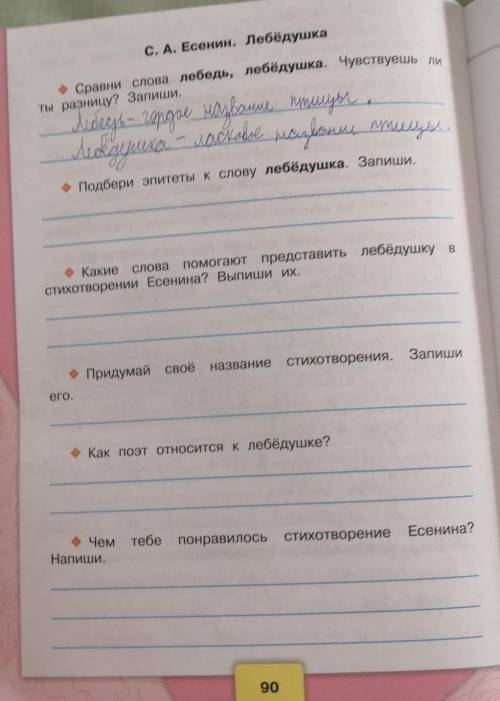 С. А. Есенин. Лебёдушка
Сравни слова лебедь, лебёдушка. Чувствуешь ли
ты разницу? Запиши.
Лебедь - гордое название птицы.
Лебёдушка - ласковое название птицы.
Подбери эпитеты к слову лебёдушка. Запиши.
Какие слова помогают представить лебёдушку в
стихотворении Есенина? Выпиши их.
Придумай своё название стихотворения. Запиши
его.
Как поэт относится к лебёдушке?
Чем тебе понравилось стихотворение Есенина?
Напиши.
90